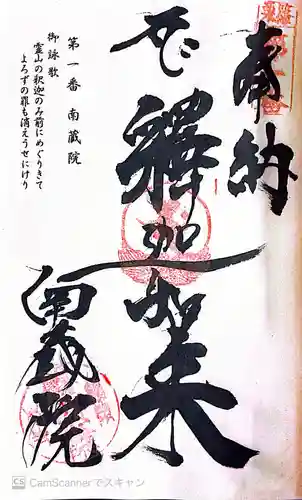 奉納
釋迦如来
第一番 南蔵院
御詠歌
霊山の釈迦のみ前にめぐりきて
よろずの罪も消えうせにけり
南蔵院
CS CamScannerでスキャン